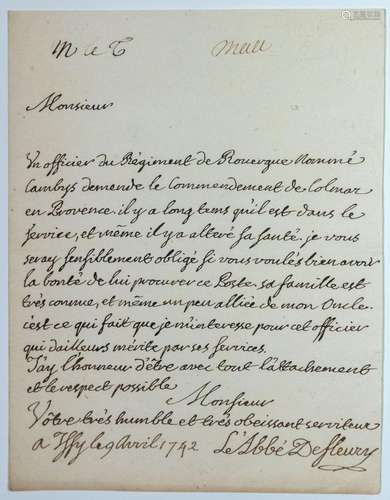 M de C
Monsieur
Un officier du Régiment de Rouergue Nommé
Cambys demende le Commendement de Colmar
en Provence. il y a long tems qu'il est dans le
service, et même il y a alteré sa santé. je vous
seray sensiblement obligé si vous voulés bien avoir
la bonté de lui procurer ce Poste. sa famille est
trés connue, et même un peu alliée de mon Oncle.
c'est ce qui fait que je m'interesse pour cet officier
qui dailleurs mérite par ses services.
J'ay l'honneur d'être avec tout l'attachement
et le respect possible
Monsieur
Vôtre trés humble et trés obeissant serviteur
a Issy le 9 Avril 1742 L'Abbé De fleury